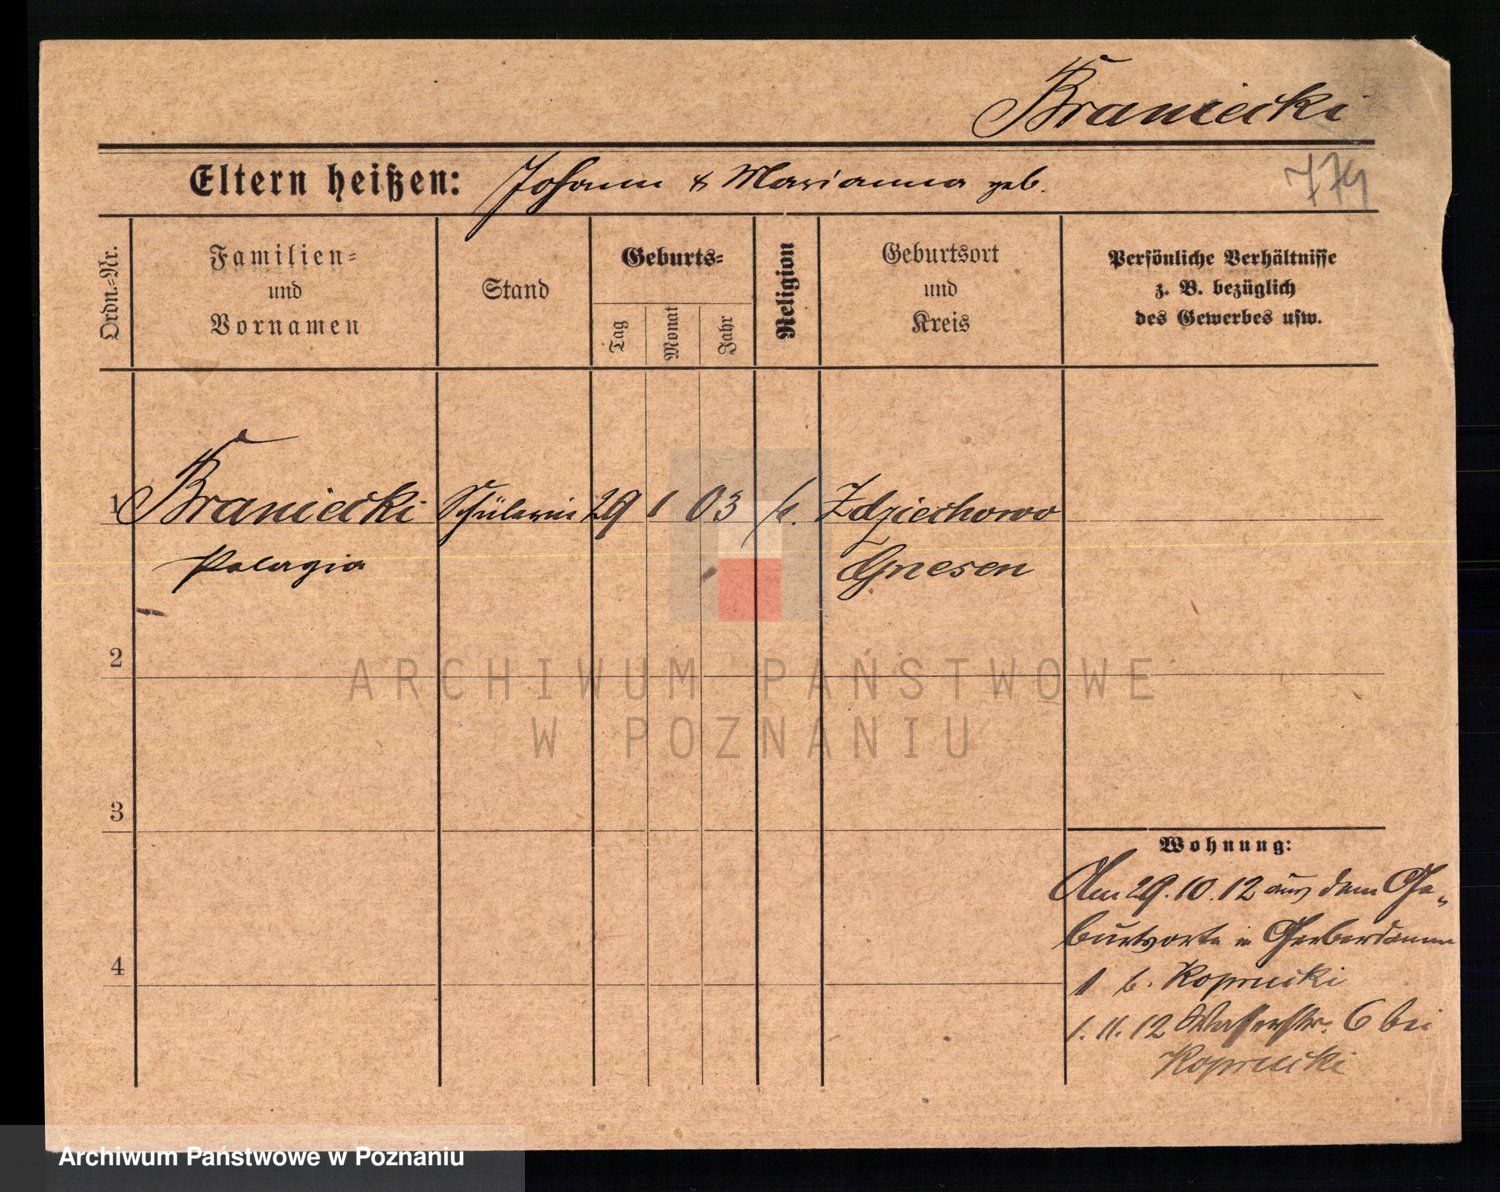 Braniecki
Eltern heißen: Johann & Marianna geb.
779
Ordn.-Nr.
Familien-
und
Vornamen
Stand
Geburts-
Tag
Monat
Jahr
Religion
Geburtsort
und
Kreis
Persönliche Verhältnisse
z. B. bezüglich
des Gewerbes usw.
1 Braniecki Schülerin 29 1 03 k. Zdziechowo
Pelagia Gnesen
2
3
4
Wohnung:
Am 29.10.12 aus dem Ge-
burtsorte in Gerberdamm
1 b.
1.11.12 Wasserstr. 6 bei
ARCHIWUM PAŃSTWOWE
W POZNANIU
Archiwum Państwowe w Poznaniu